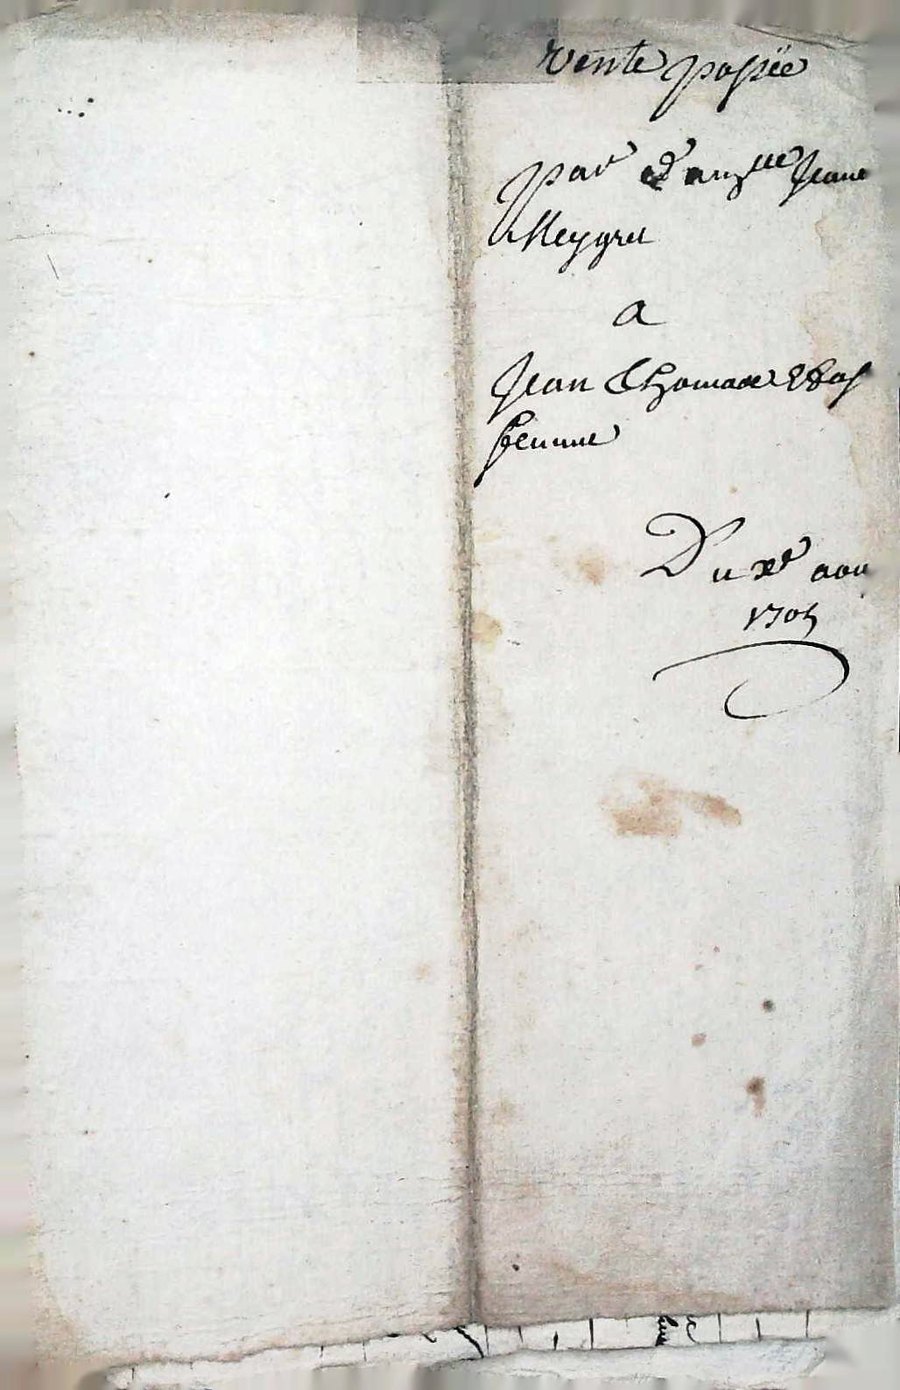 Vente passée
par d'amzlle Jeane
Meygret
a
Jean Thomas
femme
Du xe aou
1705